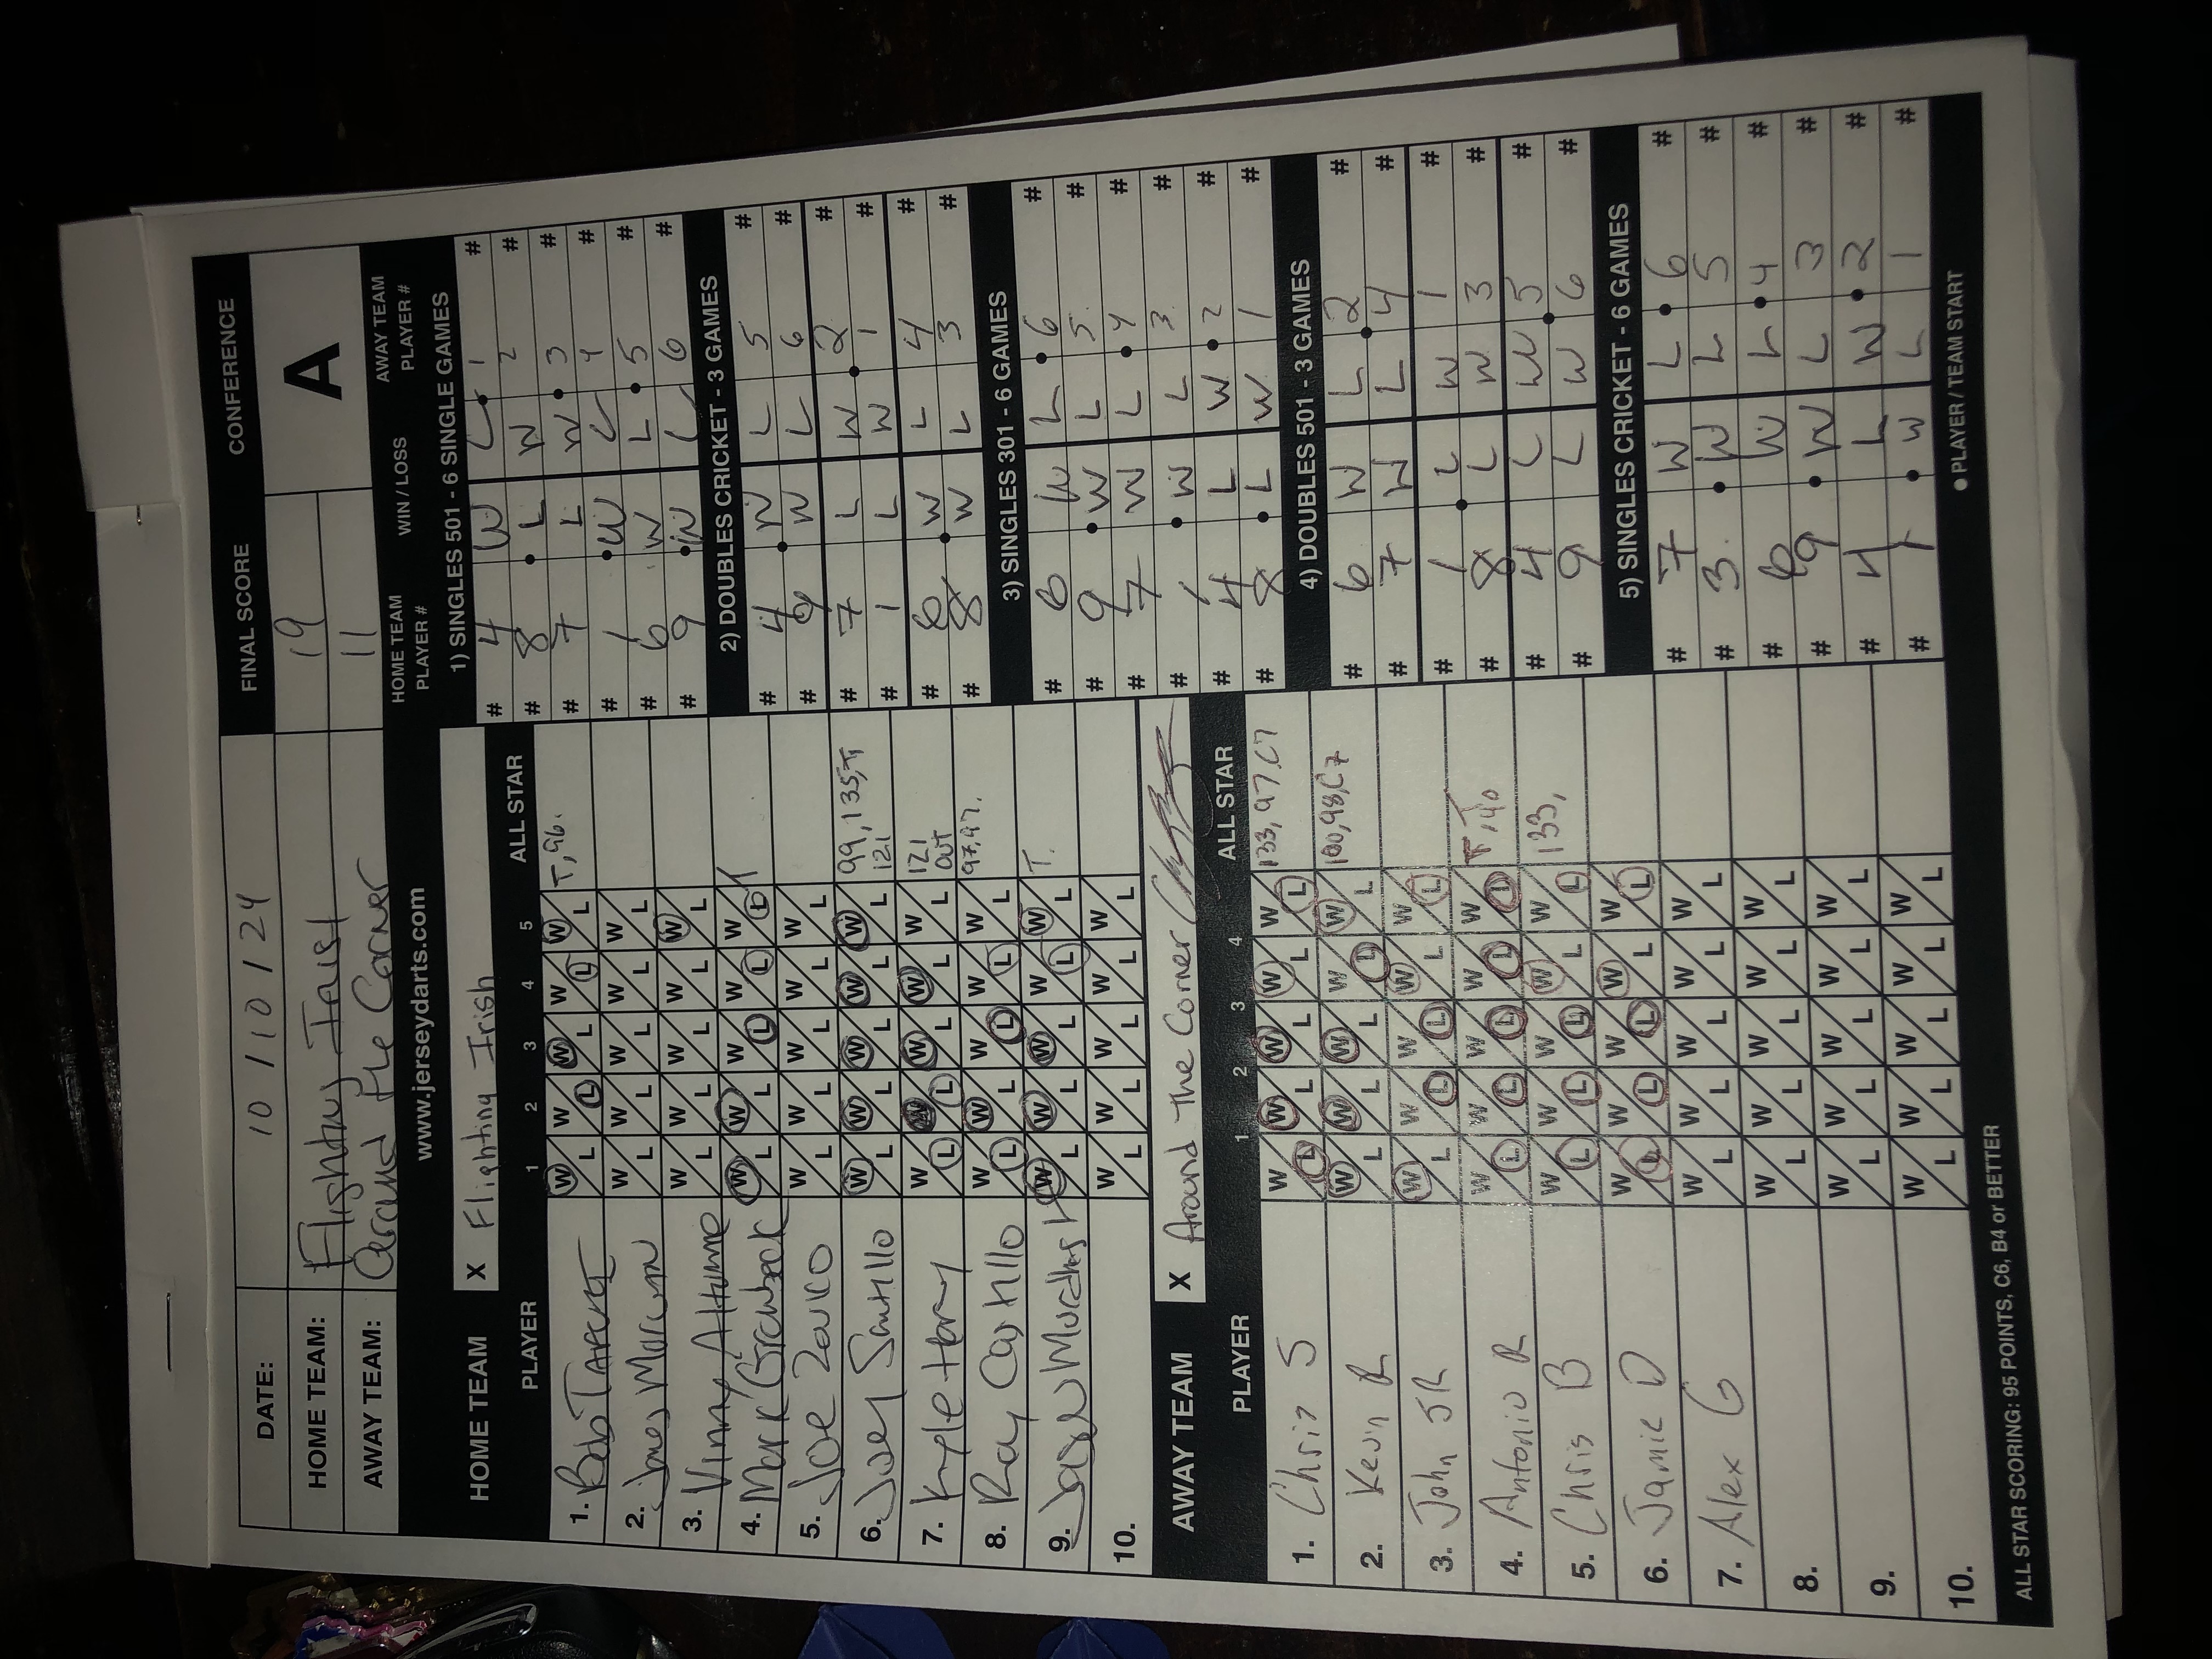 DATE: 10 / 10 / 24 FINAL SCORE CONFERENCE
HOME TEAM: 19 A
AWAY TEAM: Around the Corner 11
www.jerseydarts.com
HOME TEAM X Flighting Irish
PLAYER 1 2 3 4 5 ALL STAR
1. Bob W/L W/L W/L W/L W/L T, 96.
2. James W/L W/L W/L W/L W/L
3. Vinny W/L W/L W/L W/L W/L
4. Mark W/L W/L W/L W/L W/L
5. Joe W/L W/L W/L W/L W/L
6. Joey Santillo W/L W/L W/L W/L W/L 99, 135, T
121
7. Kyle W/L W/L W/L W/L W/L 121
OUT
8. Ray Castillo W/L W/L W/L W/L W/L 97, 97.
9. W/L W/L W/L W/L W/L T.
10. W/L W/L W/L W/L W/L
AWAY TEAM X Around The Corner
PLAYER 1 2 3 4 ALL STAR
1. Chris S W/L W/L W/L W/L W/L 133, 97, C7
2. Kevin R W/L W/L W/L W/L W/L 100, 98, C7
3. John JR W/L W/L W/L W/L W/L
4. Antonio R W/L W/L W/L W/L W/L T, 140
5. Chris B W/L W/L W/L W/L W/L 133,
6. Jamie D W/L W/L W/L W/L W/L
7. Alex G W/L W/L W/L W/L W/L
8. W/L W/L W/L W/L W/L
9. W/L W/L W/L W/L W/L
10. W/L W/L W/L W/L W/L
HOME TEAM PLAYER # WIN / LOSS AWAY TEAM PLAYER #
1) SINGLES 501 - 6 SINGLE GAMES
# 4 W L 1 #
# 8 L W 2 #
# 7 L W 3 #
# 1 W L 4 #
# 6 W L 5 #
# 9 W L 6 #
2) DOUBLES CRICKET - 3 GAMES
# 4 W L 5 #
# 9 W L 6 #
# 7 L W 2 #
# 1 L W 1 #
# 6 W L 4 #
# 8 W L 3 #
3) SINGLES 301 - 6 GAMES
# 6 W L 6 #
# 9 W L 5 #
# 7 W L 4 #
# 1 W L 3 #
# 4 L W 2 #
# 8 L W 1 #
4) DOUBLES 501 - 3 GAMES
# 6 W L 2 #
# 7 W L 4 #
# 1 L W 1 #
# 8 L W 3 #
# 4 L W 5 #
# 9 L W 6 #
5) SINGLES CRICKET - 6 GAMES
# 7 W L 6 #
# 3 W L 5 #
# 6 W L 4 #
# 9 W L 3 #
# 4 L W 2 #
# 1 W L 1 #
ALL STAR SCORING: 95 POINTS, C6, B4 or BETTER
● PLAYER / TEAM START